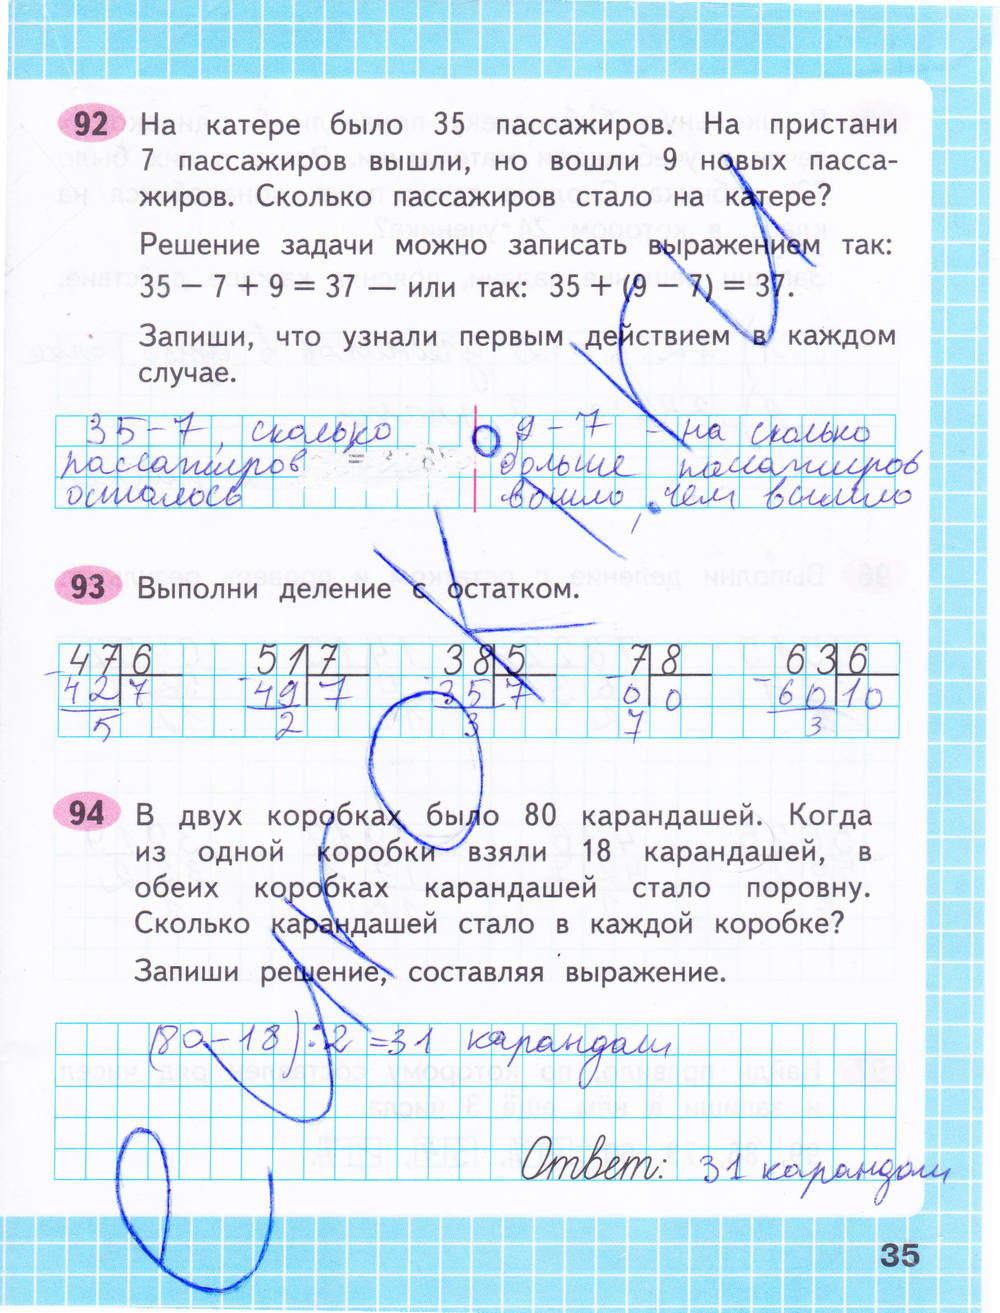 92 На катере было 35 пассажиров. На пристани
7 пассажиров вышли, но вошли 9 новых пасса-
жиров. Сколько пассажиров стало на катере?
Решение задачи можно записать выражением так:
35 − 7 + 9 = 37 — или так: 35 + (9 − 7) = 37.
Запиши, что узнали первым действием в каждом
случае.
35-7, сколько
пассажиров
осталось
9-7 - на сколько
больше пассажиров
вошло, чем вышло
93 Выполни деление с остатком.
47 6 51 7 38 5 7 8 63 6
-42 7 -49 7 -35 7 -0 0 -60 10
5 2 3 7 3
94 В двух коробках было 80 карандашей. Когда
из одной коробки взяли 18 карандашей, в
обеих коробках карандашей стало поровну.
Сколько карандашей стало в каждой коробке?
Запиши решение, составляя выражение.
(80-18):2=31 карандаш
Ответ: 31 карандаш
35